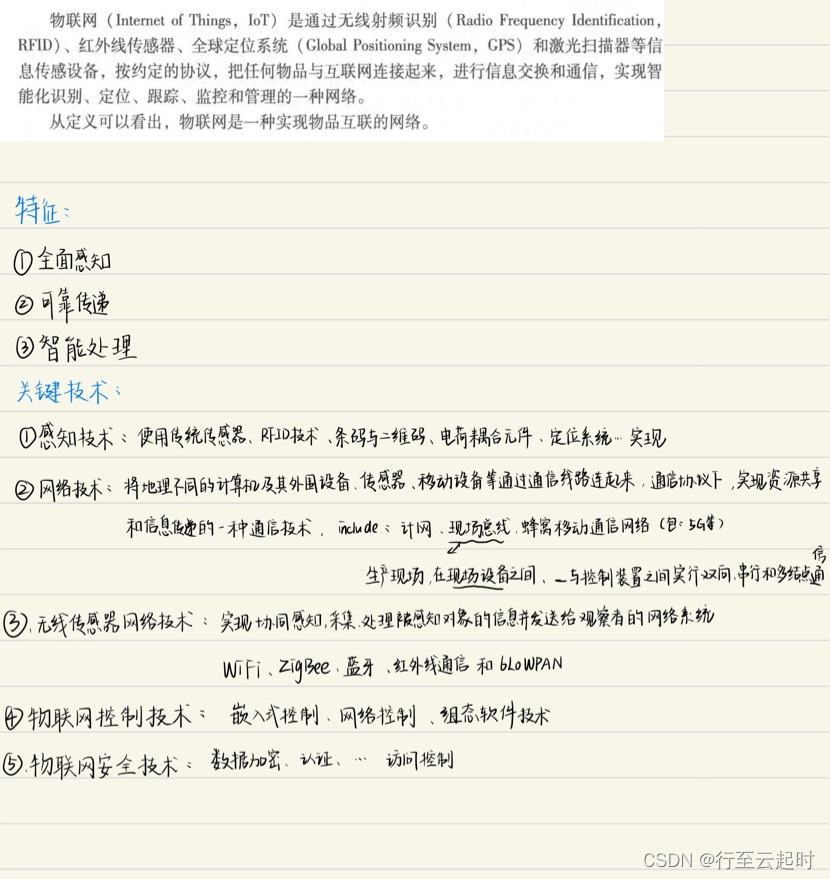 物联网（Internet of Things，IoT）是通过无线射频识别（Radio Frequency Identification，
RFID）、红外线传感器、全球定位系统（Global Positioning System，GPS）和激光扫描器等信
息传感设备，按约定的协议，把任何物品与互联网连接起来，进行信息交换和通信，实现智
能化识别、定位、跟踪、监控和管理的一种网络。
从定义可以看出，物联网是一种实现物品互联的网络。
特征：
①全面感知
②可靠传递
③智能处理
关键技术：
①感知技术：使用传统传感器、RFID技术、条码与二维码、电荷耦合元件、定位系统…实现
②网络技术：将地理不同的计算机及其外围设备、传感器、移动设备等通过通信线路连起来，通信协议下，实现资源共享
和信息传递的一种通信技术，include：计网、现场总线、蜂窝移动通信网络（5G等）
生产现场，在现场设备之间、一与控制装置之间实行双向、串行和多结点通信
③.无线传感器网络技术：实现协同感知，采集、处理被感知对象的信息并发送给观察者的网络系统
WiFi、ZigBee、蓝牙、红外线通信 和 6LoWPAN
④物联网控制技术：嵌入式控制、网络控制、组态软件技术
⑤.物联网安全技术：数据加密、认证、… 访问控制
CSDN @行至云起时